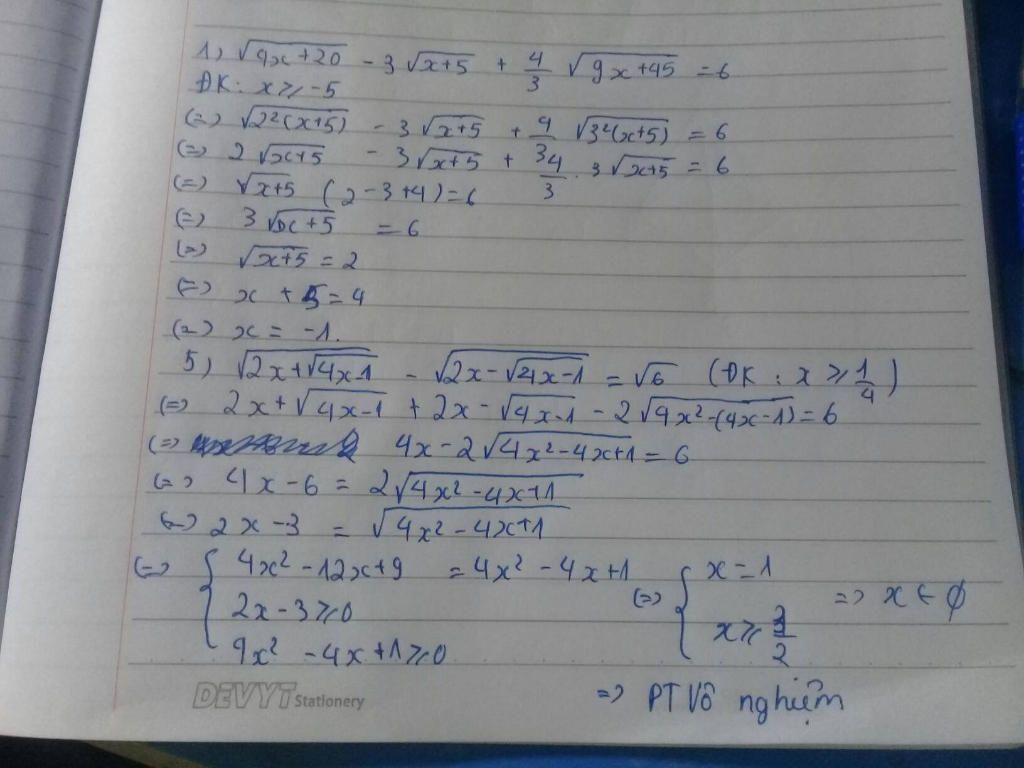 1) √(4x+20) - 3√(x+5) + 4/3 √(9x+45) = 6
ĐK: x ≥ -5
(=) √(2²(x+5)) - 3√(x+5) + 4/3 √(3²(x+5)) = 6
(=) 2√(x+5) - 3√(x+5) + 4/3 . 3√(x+5) = 6
(=) √(x+5) (2-3+4) = 6
(=) 3√(x+5) = 6
(=) √(x+5) = 2
(=) x + 5 = 4
(=) x = -1.
5) √(2x+√(4x-1)) - √(2x-√(4x-1)) = √6 (ĐK: x ≥ 1/4)
(=) 2x+√(4x-1) + 2x-√(4x-1) - 2√(4x²-(4x-1)) = 6
(=) 4x-2√(4x²-4x+1) = 6
(=) 4x-6 = 2√(4x²-4x+1)
(=) 2x-3 = √(4x²-4x+1)
(=) { 4x²-12x+9 = 4x²-4x+1 (=) { x=1 => x ∈ ∅
2x-3 ≥ 0 x ≥ 3/2
4x²-4x+1 ≥ 0
=> PT Vô nghiệm
DEVYT Stationery